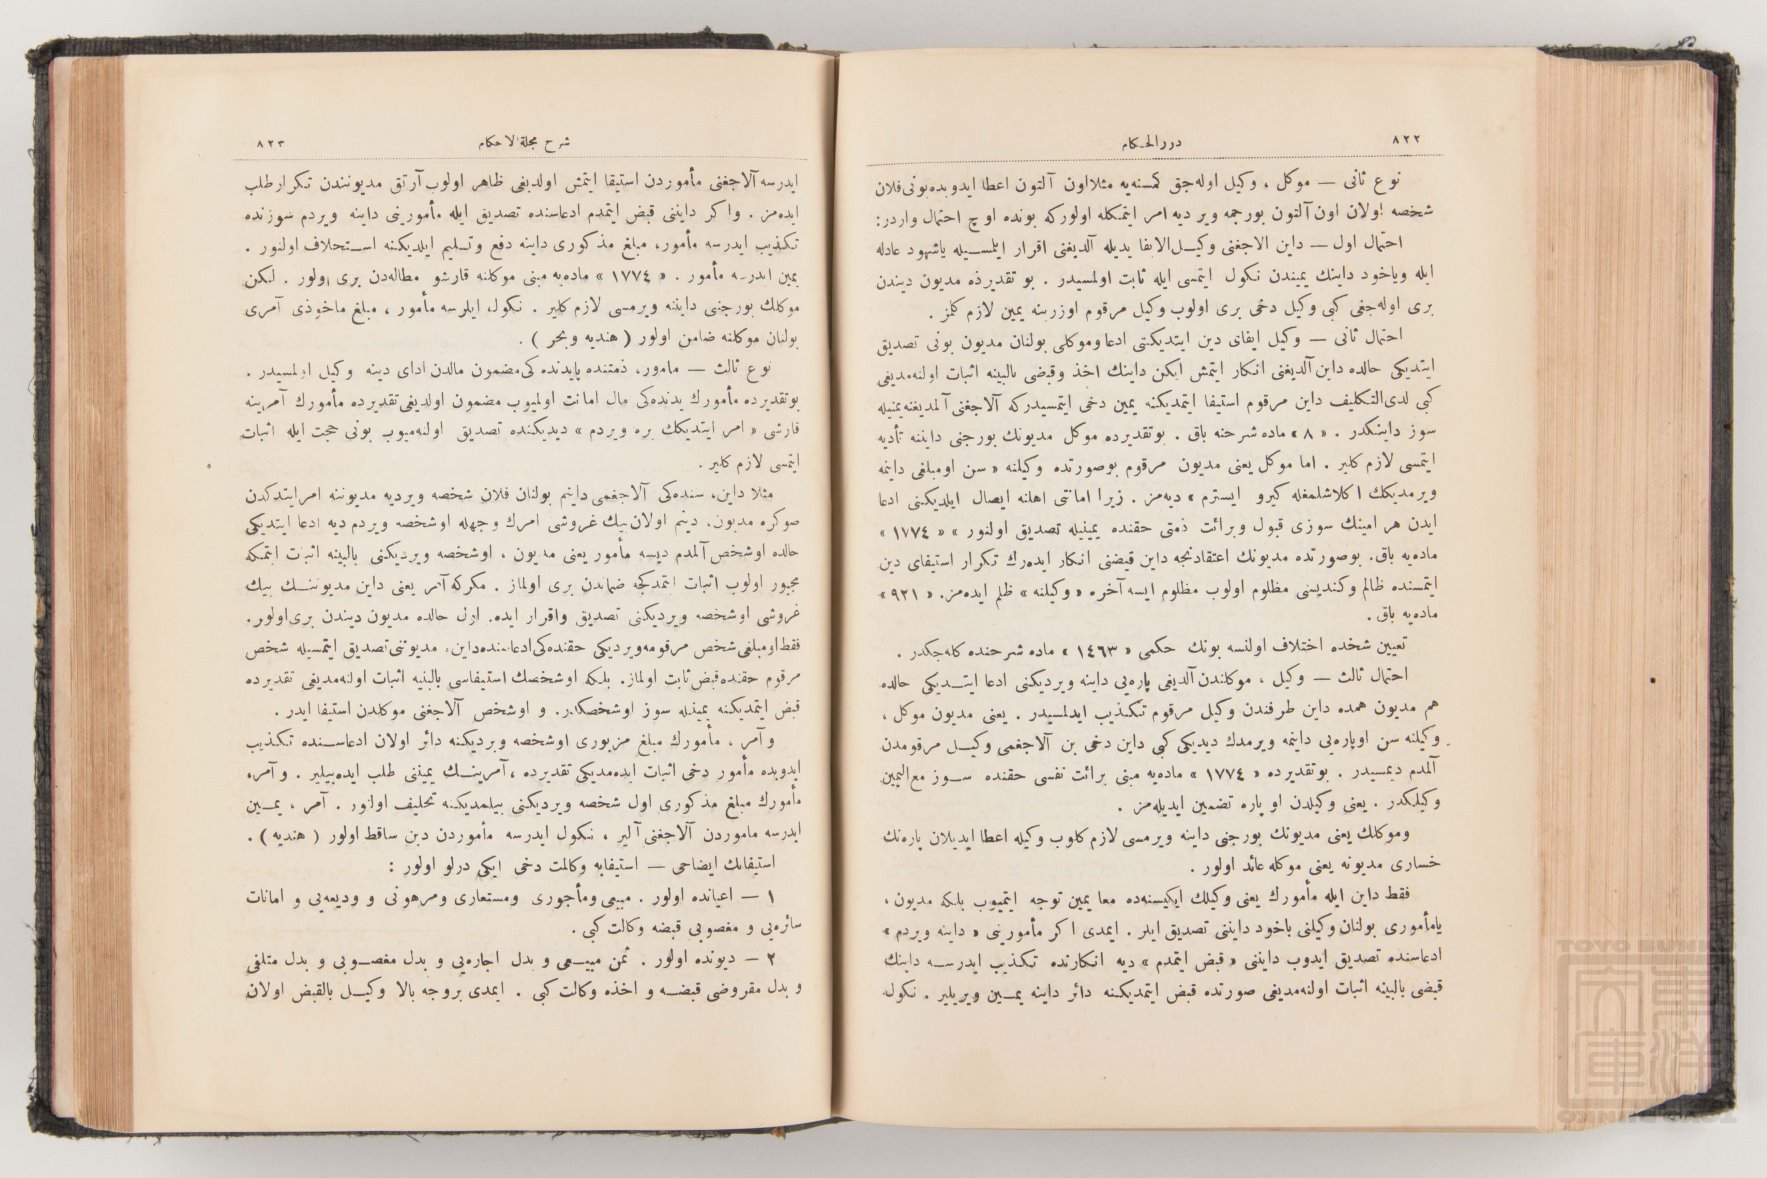 ٨٢٢
دررالحكام
نوع ثانی — موكل ، وكيل اوله‌جق كمسنه‌یه مثلااون آلتون اعطا ایدوبده‌بونی‌فلان
شخصه اولان اون‌آلتون بورجمه ویر دیه امر ایتمكله اولوركه بونده اوچ احتمال واردر:
احتمال اول — داین الاجغنی وكیل‌الایفا یدیله آلدیغنی اقرار ایلمسیله یاشهود عادله
ایله ویاخود داینك یمیندن نكول ایتمسی ایله ثابت اولمسیدر . بو تقدیرده مدیون دیندن
بری اوله‌جغی كبی وكیل دخی بری اولوب وكیل مرقوم اوزرینه یمین لازم كلمز .
احتمال ثانی — وكیل ایفای دین ایتدیكنی ادعا وموكلی بولنان مدیون بونی تصدیق
ایتدیكی حالده داین آلدیغنی انكار ایتمش ایكن داینك اخذ وقبضی بالبینه اثبات اولنه‌مدیغی
كبی لدی‌التكلیف داین مرقوم استیفا ایتمدیكنه یمین دخی ایتمسیدركه آلاجغنی آلمدیغنه‌یمینیله
سوز داینكدر . « ٨ » ماده شرحنه باق . بوتقدیرده موكل مدیونك بورجنی داینه تأدیه
ایتمسی لازم كلیر . اما موكل یعنی مدیون مرقوم بوصورتده وكیلنه « سن اومبلغی داینمه
ویرمدیكك اكلاشلمغله كیرو ایسترم » دیه‌مز . زیرا امانتی اهلنه ایصال ایلدیكنی ادعا
ایدن هر امینك سوزی قبول وبرائت ذمتی حقنده یمینیله تصدیق اولنور » « ١٧٧٤ »
ماده‌یه باق. بوصورتده مدیونك اعتقادنجه داین قبضنی انكار ایده‌رك تكرار استیفای دین
ایتمسنده ظالم وكندیسی مظلوم اولوب مظلوم ایسه آخره « وكیلنه » ظلم ایده‌مز. « ٩٢١ »
ماده‌یه باق .
تعیین شخصده اختلاف اولنسه بونك حكمی « ١٤٦٣ » ماده شرحنده كله‌جكدر .
احتمال ثالث — وكیل ، موكلندن آلدیغی پاره‌یی داینه ویردیكنی ادعا ایتدیكی حالده
هم مدیون همده داین طرفندن وكیل مرقوم تكذیب ایدلمسیدر . یعنی مدیون موكل ،
وكیلنه سن اوپاره‌یی داینمه ویرمدك دیدیكی كبی داین دخی بن آلاجغمی وكیل مرقومدن
آلمدم دیمسیدر . بوتقدیرده « ١٧٧٤ » ماده‌یه مبنی برائت نفسی حقنده سوز مع‌الیمین
وكیلكدر . یعنی وكیلدن او پاره تضمین ایدیله‌مز .
وموكلك یعنی مدیونك بورجنی داینه ویرمسی لازم كلوب وكیله اعطا ایدیلان پاره‌نك
خساری مدیونه یعنی موكله عائد اولور .
فقط داین ایله مأمورك یعنی وكیلك ایكیسنه‌ده معا یمین توجه ایتمیوب بلكه مدیون ،
یامأموری بولنان وكیلنی یاخود داینی تصدیق ایلر . ایمدی اكر مأمورینی « داینه ویردم »
ادعاسنده تصدیق ایدوب داینی « قبض ایتمدم » دیه انكارنده تكذیب ایدرسه داینك
قبضی بالبینه اثبات اولنه‌مدیغی صورتده قبض ایتمدیكنه دائر داینه یمین ویریلیر . نكول
٨٢٣
شرح مجلة الاحكام
ایدرسه آلاجغنی مأموردن استیفا ایتمش اولدیغی ظاهر اولوب آرتق مدیونندن تكرارطلب
ایده‌مز . واكر داینی قبض ایتمدم ادعاسنده تصدیق ایله مأمورینی داینه ویردم سوزنده
تكذیب ایدرسه مأمور، مبلغ مذكوری داینه دفع وتسلیم ایلدیكنه استحلاف اولنور .
یمین ایدرسه مأمور . « ١٧٧٤ » ماده‌یه مبنی موكلنه قارشو مطالبه‌دن بری اولور . لكن
موكلك بورجنی داینه ویرمسی لازم كلیر . نكول ایلرسه مأمور ، مبلغ ماخوذی آمری
بولنان موكلنه ضامن اولور ( هندیه وبحر ) .
نوع ثالث — مامور، ذمتنده یایدنده كی‌مضمون مالدن ادای دینه وكیل اولمسیدر .
بوتقدیرده مأمورك یدنده‌كی مال امانت اولمیوب مضمون اولدیغی تقدیرده مأمورك آمرینه
قارشی « امر ایتدیكك یره ویردم » دیدیكنده تصدیق اولنه‌میوب بونی حجت ایله اثبات
ایتمسی لازم كلیر .
مثلا داین، سنده‌كی آلاجغمی داینم بولنان فلان شخصه ویردیه مدیوننه امرایتدكدن
صوكره مدیون، دینم اولان‌بیك غروشی امرك وجهله اوشخصه ویردم دیه ادعا ایتدیكی
حالده اوشخص آلمدم دیسه مأمور یعنی مدیون ، اوشخصه ویردیكنی بالبینه اثبات ایتمكه
مجبور اولوب اثبات ایتمدكجه ضماندن بری اولماز . مكركه آمر یعنی داین مدیوننك بیك
غروشی اوشخصه ویردیكنی تصدیق واقرار ایده. اول حالده مدیون دیندن بری‌اولور.
فقط اومبلغی شخص مرقومه‌ویردیكی حقنده‌كی‌ادعاسنده‌داین، مدیونی تصدیق ایتمسیله شخص
مرقوم حقنده‌قبض‌ثابت اولماز. بلكه اوشخصك استیفاسی بالبینه اثبات اولنه‌مدیغی تقدیرده
قبض ایتمدیكنه یمینیله سوز اوشخصكدر. و اوشخص آلاجغنی موكلدن استیفا ایدر .
وآمر ، مأمورك مبلغ مزبوری اوشخصه ویردیكنه دائر اولان ادعاسنده تكذیب
ایدوبده مأمور دخی اثبات ایده‌مدیكی تقدیرده ، آمرینك یمیننی طلب ایده‌بیلیر . وآمر،
مأمورك مبلغ مذكوری اول شخصه ویردیكنی بیلمدیكنه تحلیف اولنور . آمر ، یمین
ایدرسه ماموردن آلاجغنی آلیر ، نكول ایدرسه مأموردن دین ساقط اولور ( هندیه ) .
استیفانك ایضاحی — استیفایه وكالت دخی ایكی درلو اولور :
١ — اعیانده اولور . مبیعی ومأجوری ومستعاری ومرهونی و ودیعه‌یی و امانات
سائره‌یی و مغصوبی قبضه وكالت كبی .
٢ — دیونده اولور . ثمن مبیعی و بدل اجاره‌یی و بدل مغصوبی و بدل متلفی
و بدل مقروضی قبضه و اخذه وكالت كبی . ایمدی بروجه بالا وكیل بالقبض اولان
TOYO BUNKO